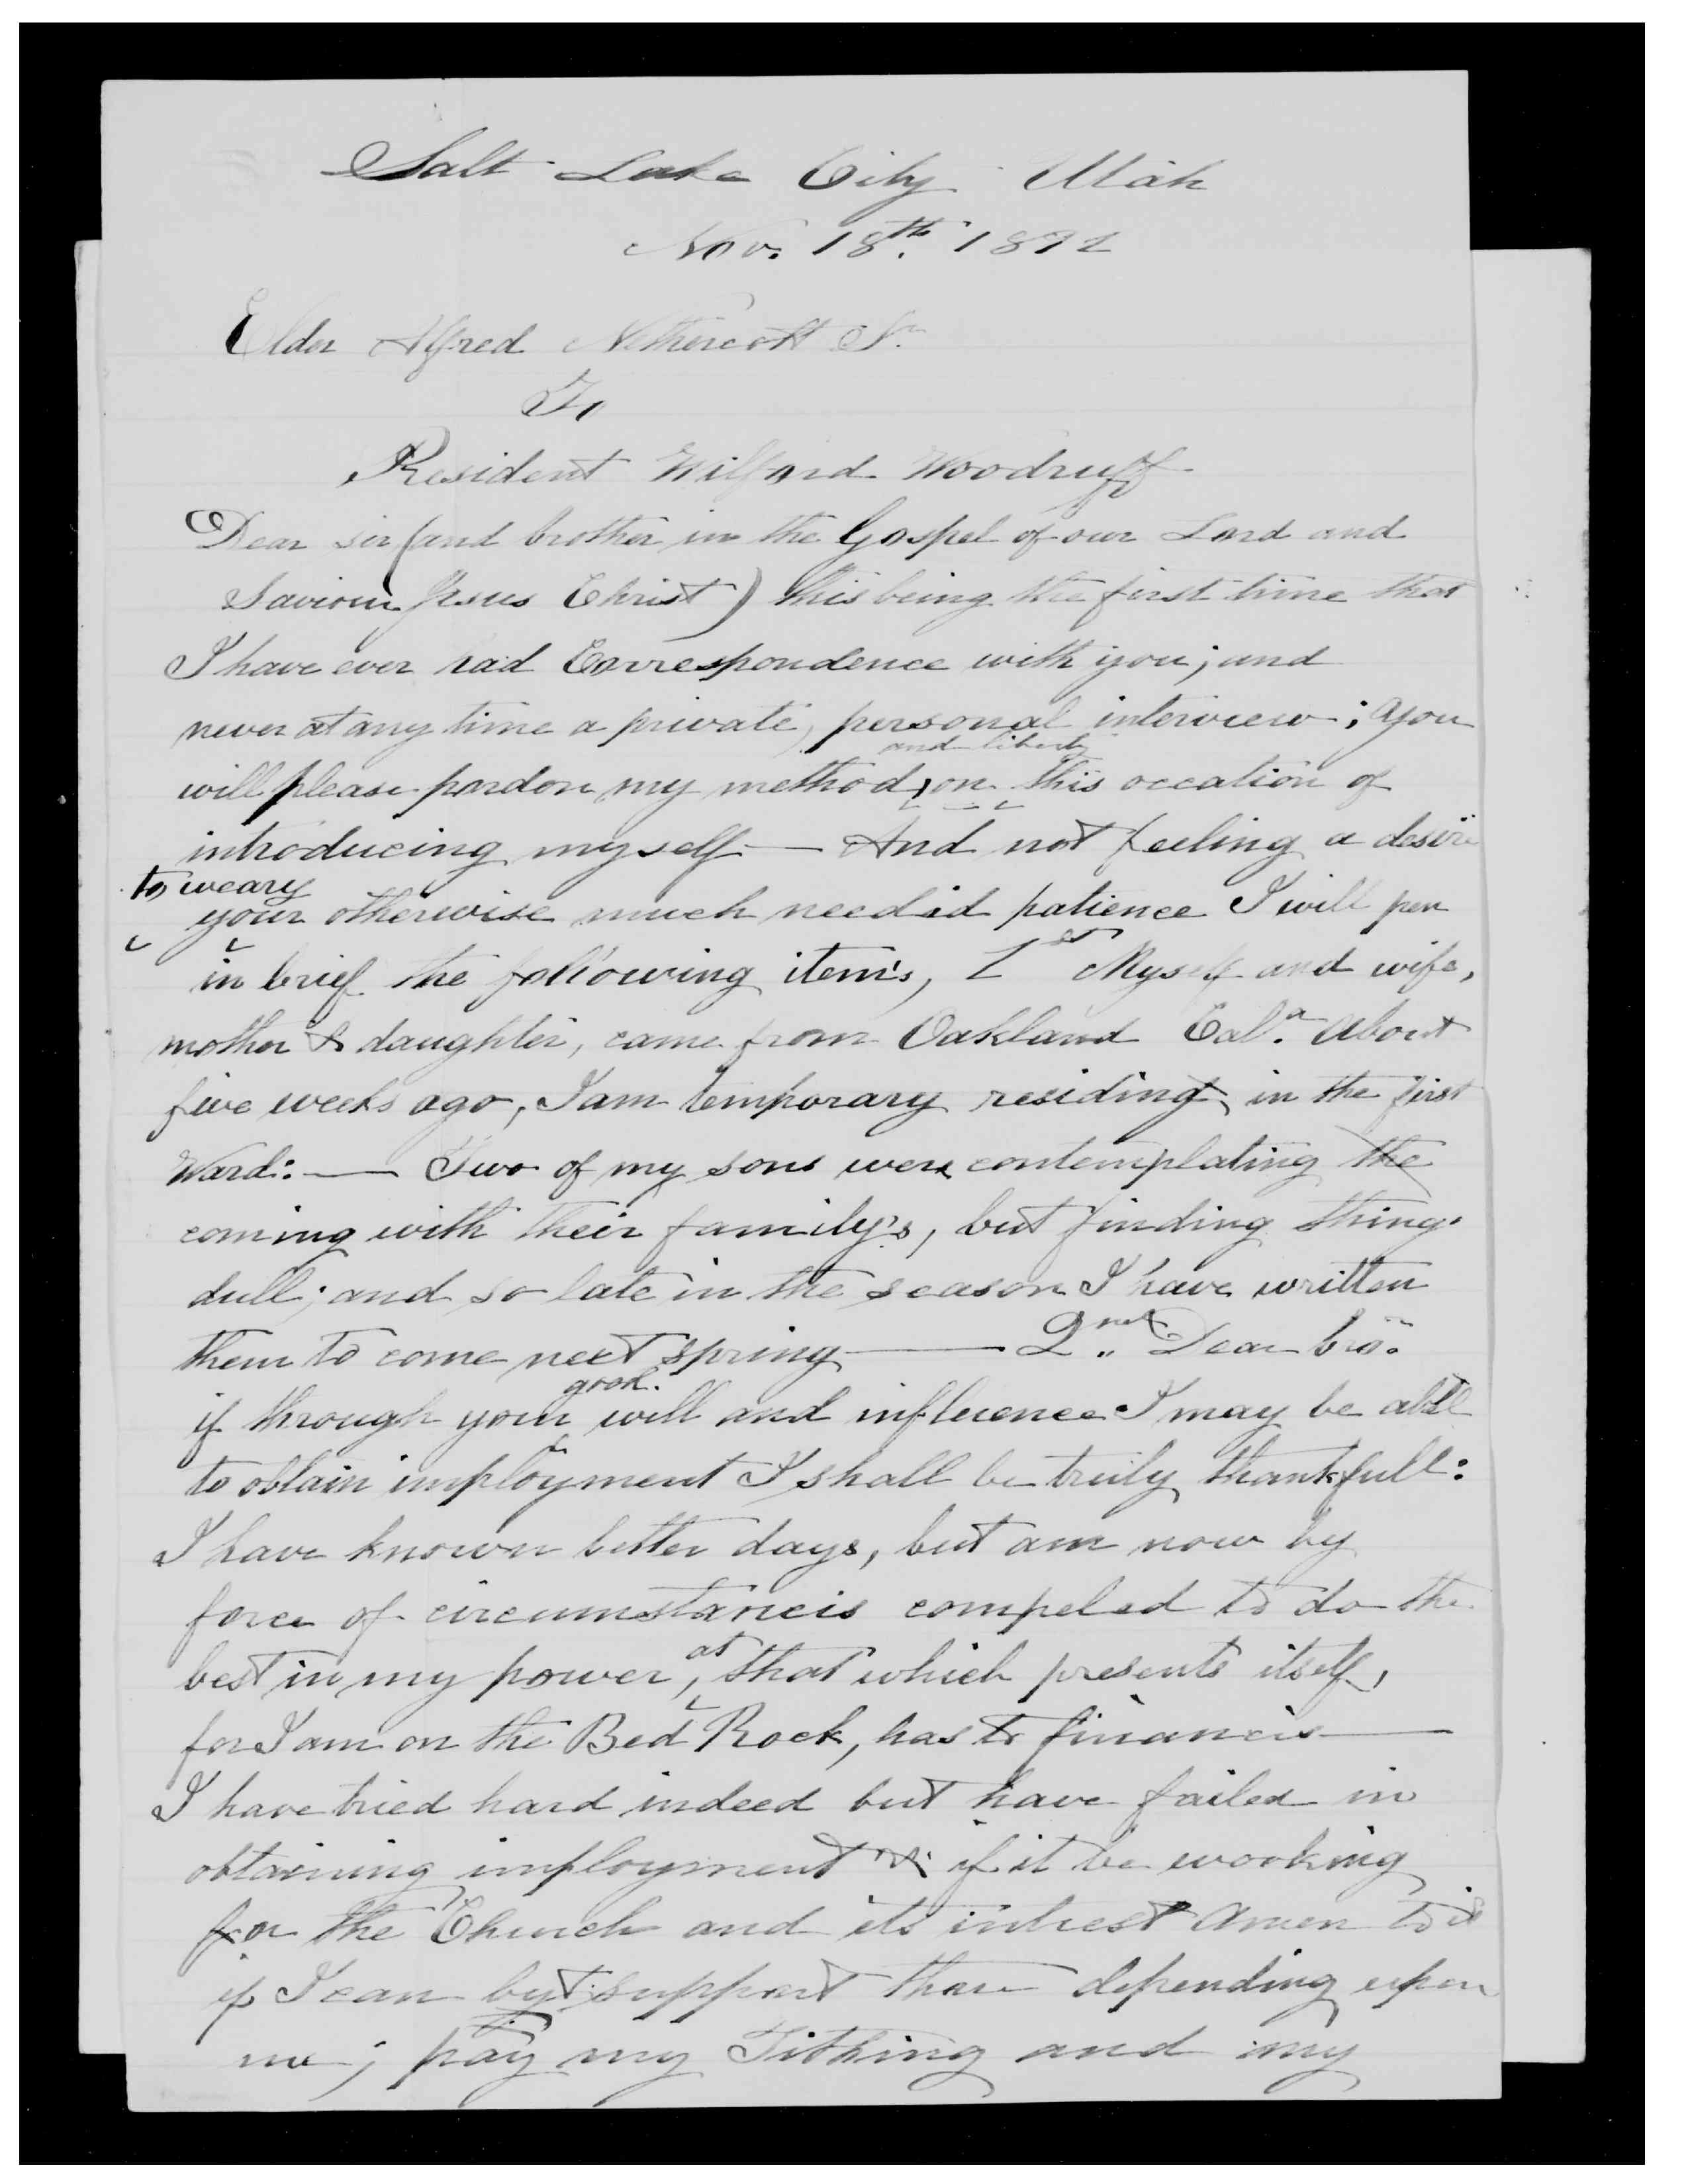 Salt Lake City Utah
Nov. 18th. 1892
Elder Alfred Nethercott Sr.
To
President Wilford Woodruff
Dear sir (and brother in the Gospel of our Lord and
Saviour Jesus Christ) this being the first time that
I have ever had Correspondence with you; and
never at any time a private, personal interview; you
and liberty
will please pardon my method, on this occation of
introducing myself — And not feeling a desire
to weary
your otherwise much needed patience I will pen
in brief the following item's, 1st Myself and wife,
mother & daughter, came from Oakland Cala. About
five weeks ago, I am temporary residing in the first
Ward: — Two of my sons were contemplating the
coming with their family's, but finding things
dull; and so late in the season I have written
them to come next spring — 2nd Dear bro.
good
if through your will and influence I may be able
to obtain imployment I shall be truly thankfull:
I have known better days, but am now by
force of circumstancis compeled to do the
at
best in my power, that which presents itself,
for I am on the Bed Rock, has to financis —
I have tried hard indeed but have failed in
obtaining imployment if it be working
for the Church and its intrest Amen to it
if I can but support those depending upon
me; pay my Tithing and my